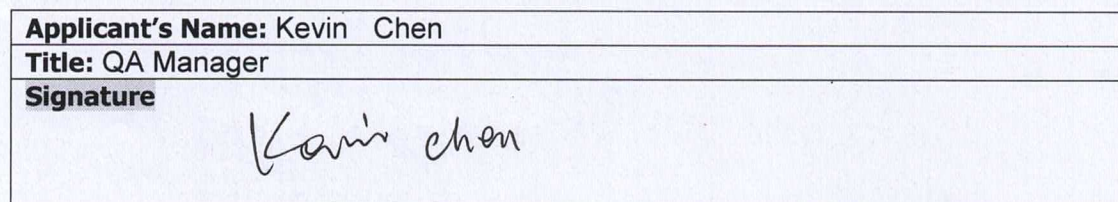 Applicant's Name: Kevin Chen
Title: QA Manager
Signature
Kevin chen